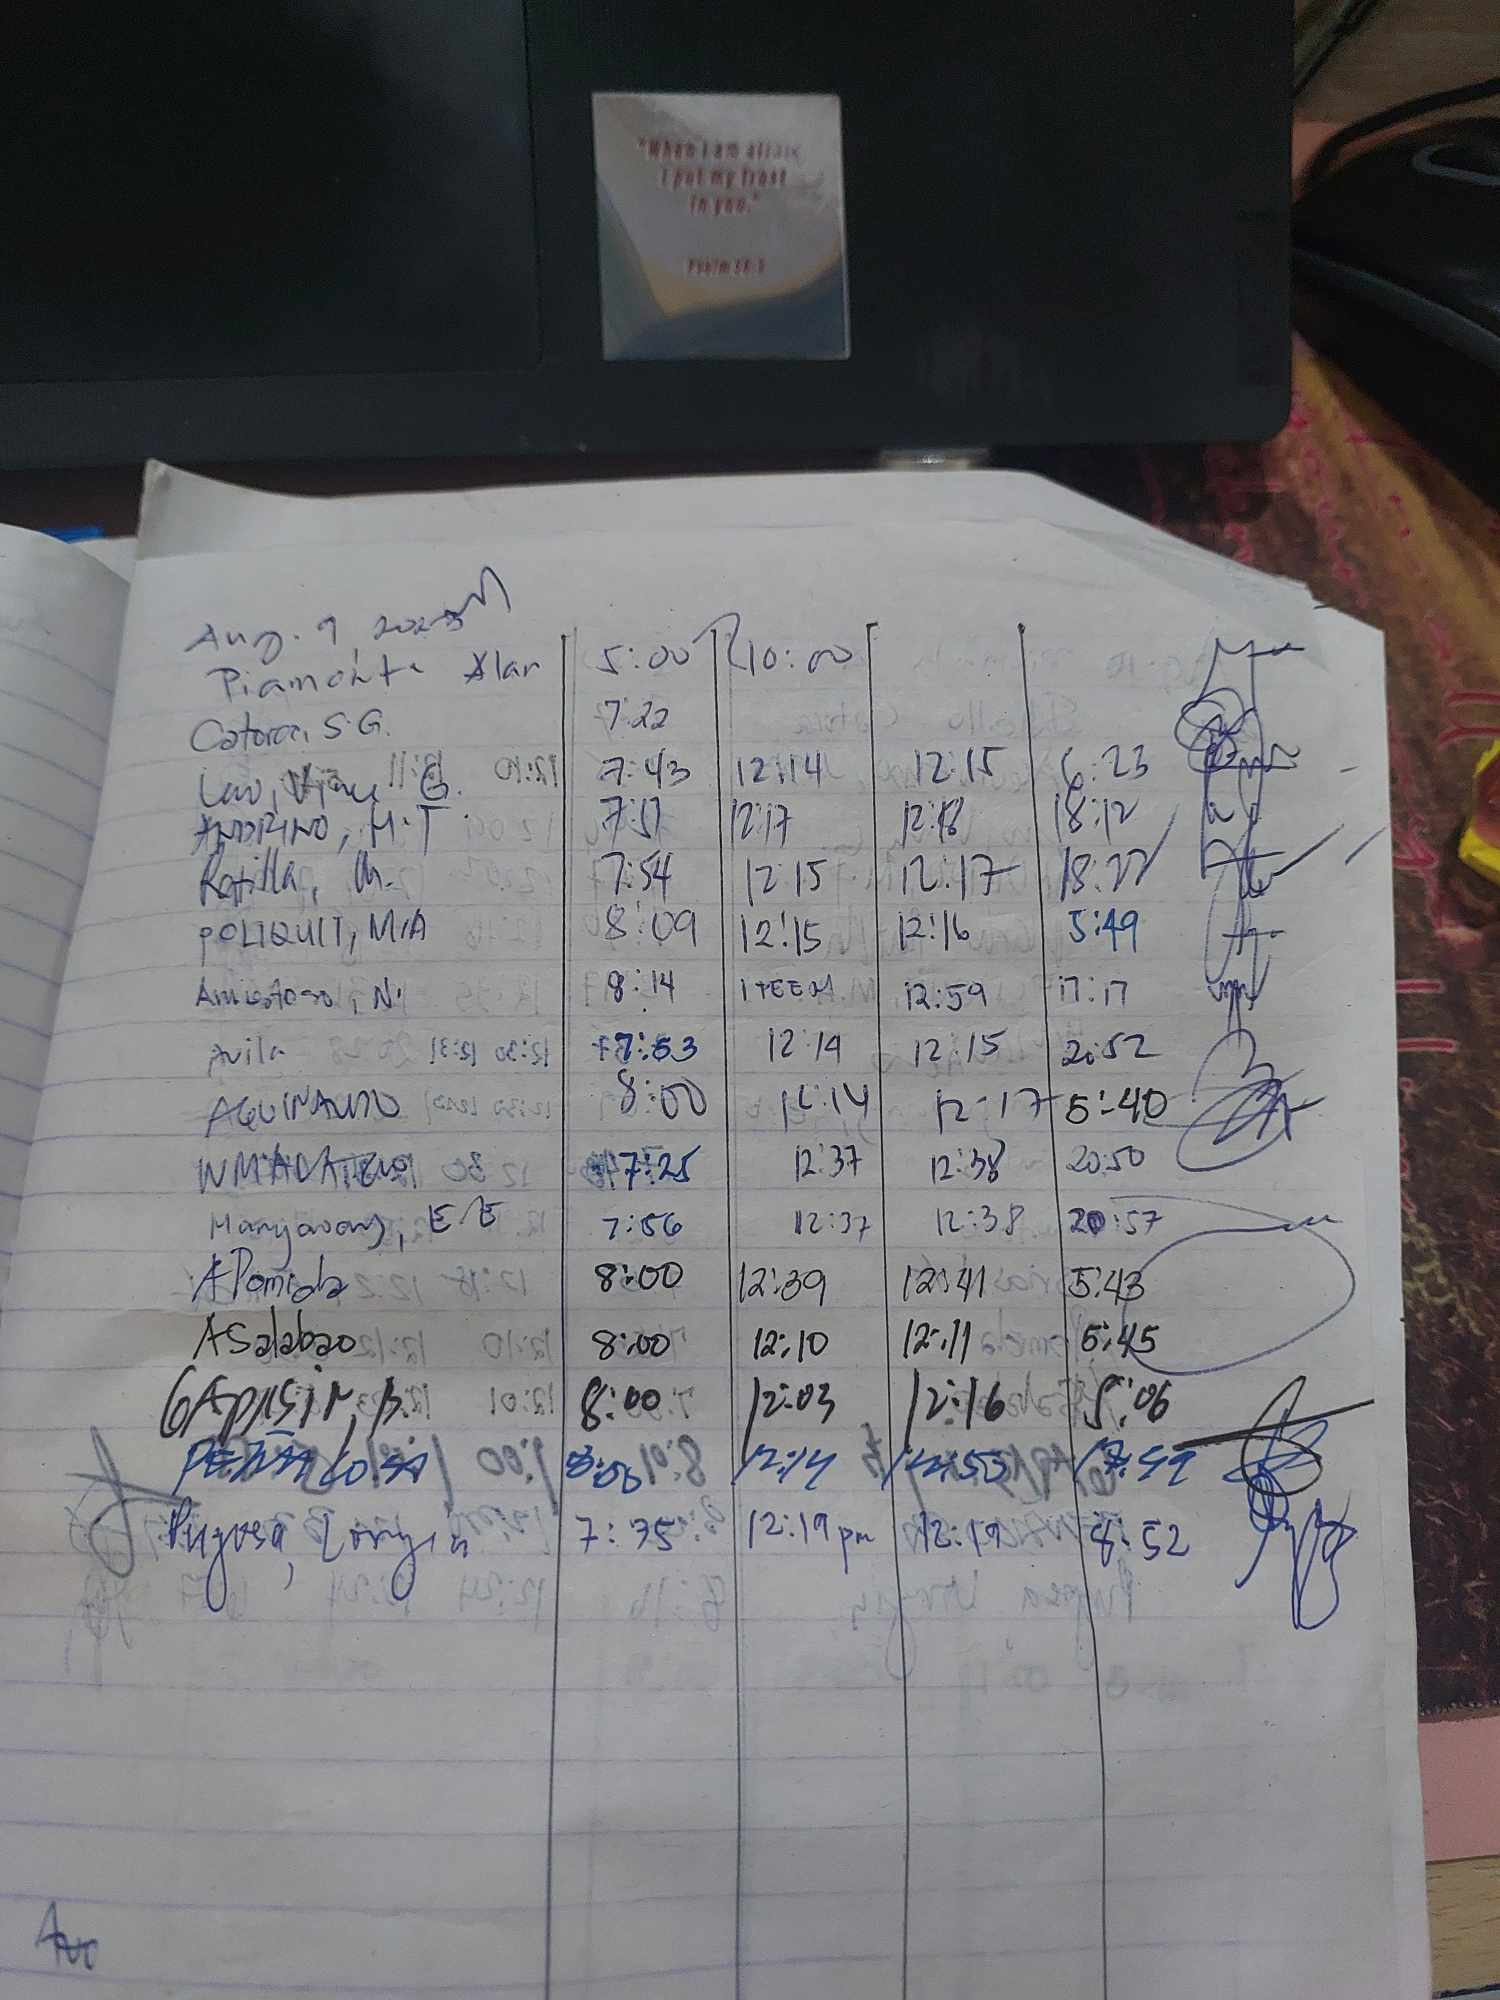 "When I am afraid,
I put my trust
in you."
Psalm 56:3
Aug. 9, 2023
Piamonte Alan 5:00 10:00
Catoroc, S.G. 7:22
G. 7:43 12:14 12:15 6:23
ANDRINO, H.T 7:51 12:17 12:18 18:12
Ratilla, M. 7:54 12:15 12:17 18:22
POLIQUIT, M.A 8:09 12:15 12:16 5:49
N. 8:14 ITEEM 12:59 17:17
Avila 7:53 12:14 12:15 20:52
AGUINALDO 8:00 12:14 12:17 5:40
7:25 12:37 12:38 20:50
E E 7:56 12:37 12:38 20:57
APomida 8:00 12:39 12:41 5:43
ASalabao 8:00 12:10 12:11 5:45
GAPASIN, B. 8:00 12:03 12:16 5:06
PEÑALOSA 8:00 12:14 12:53 17:49
7:35 12:19 pm 12:19 8:52